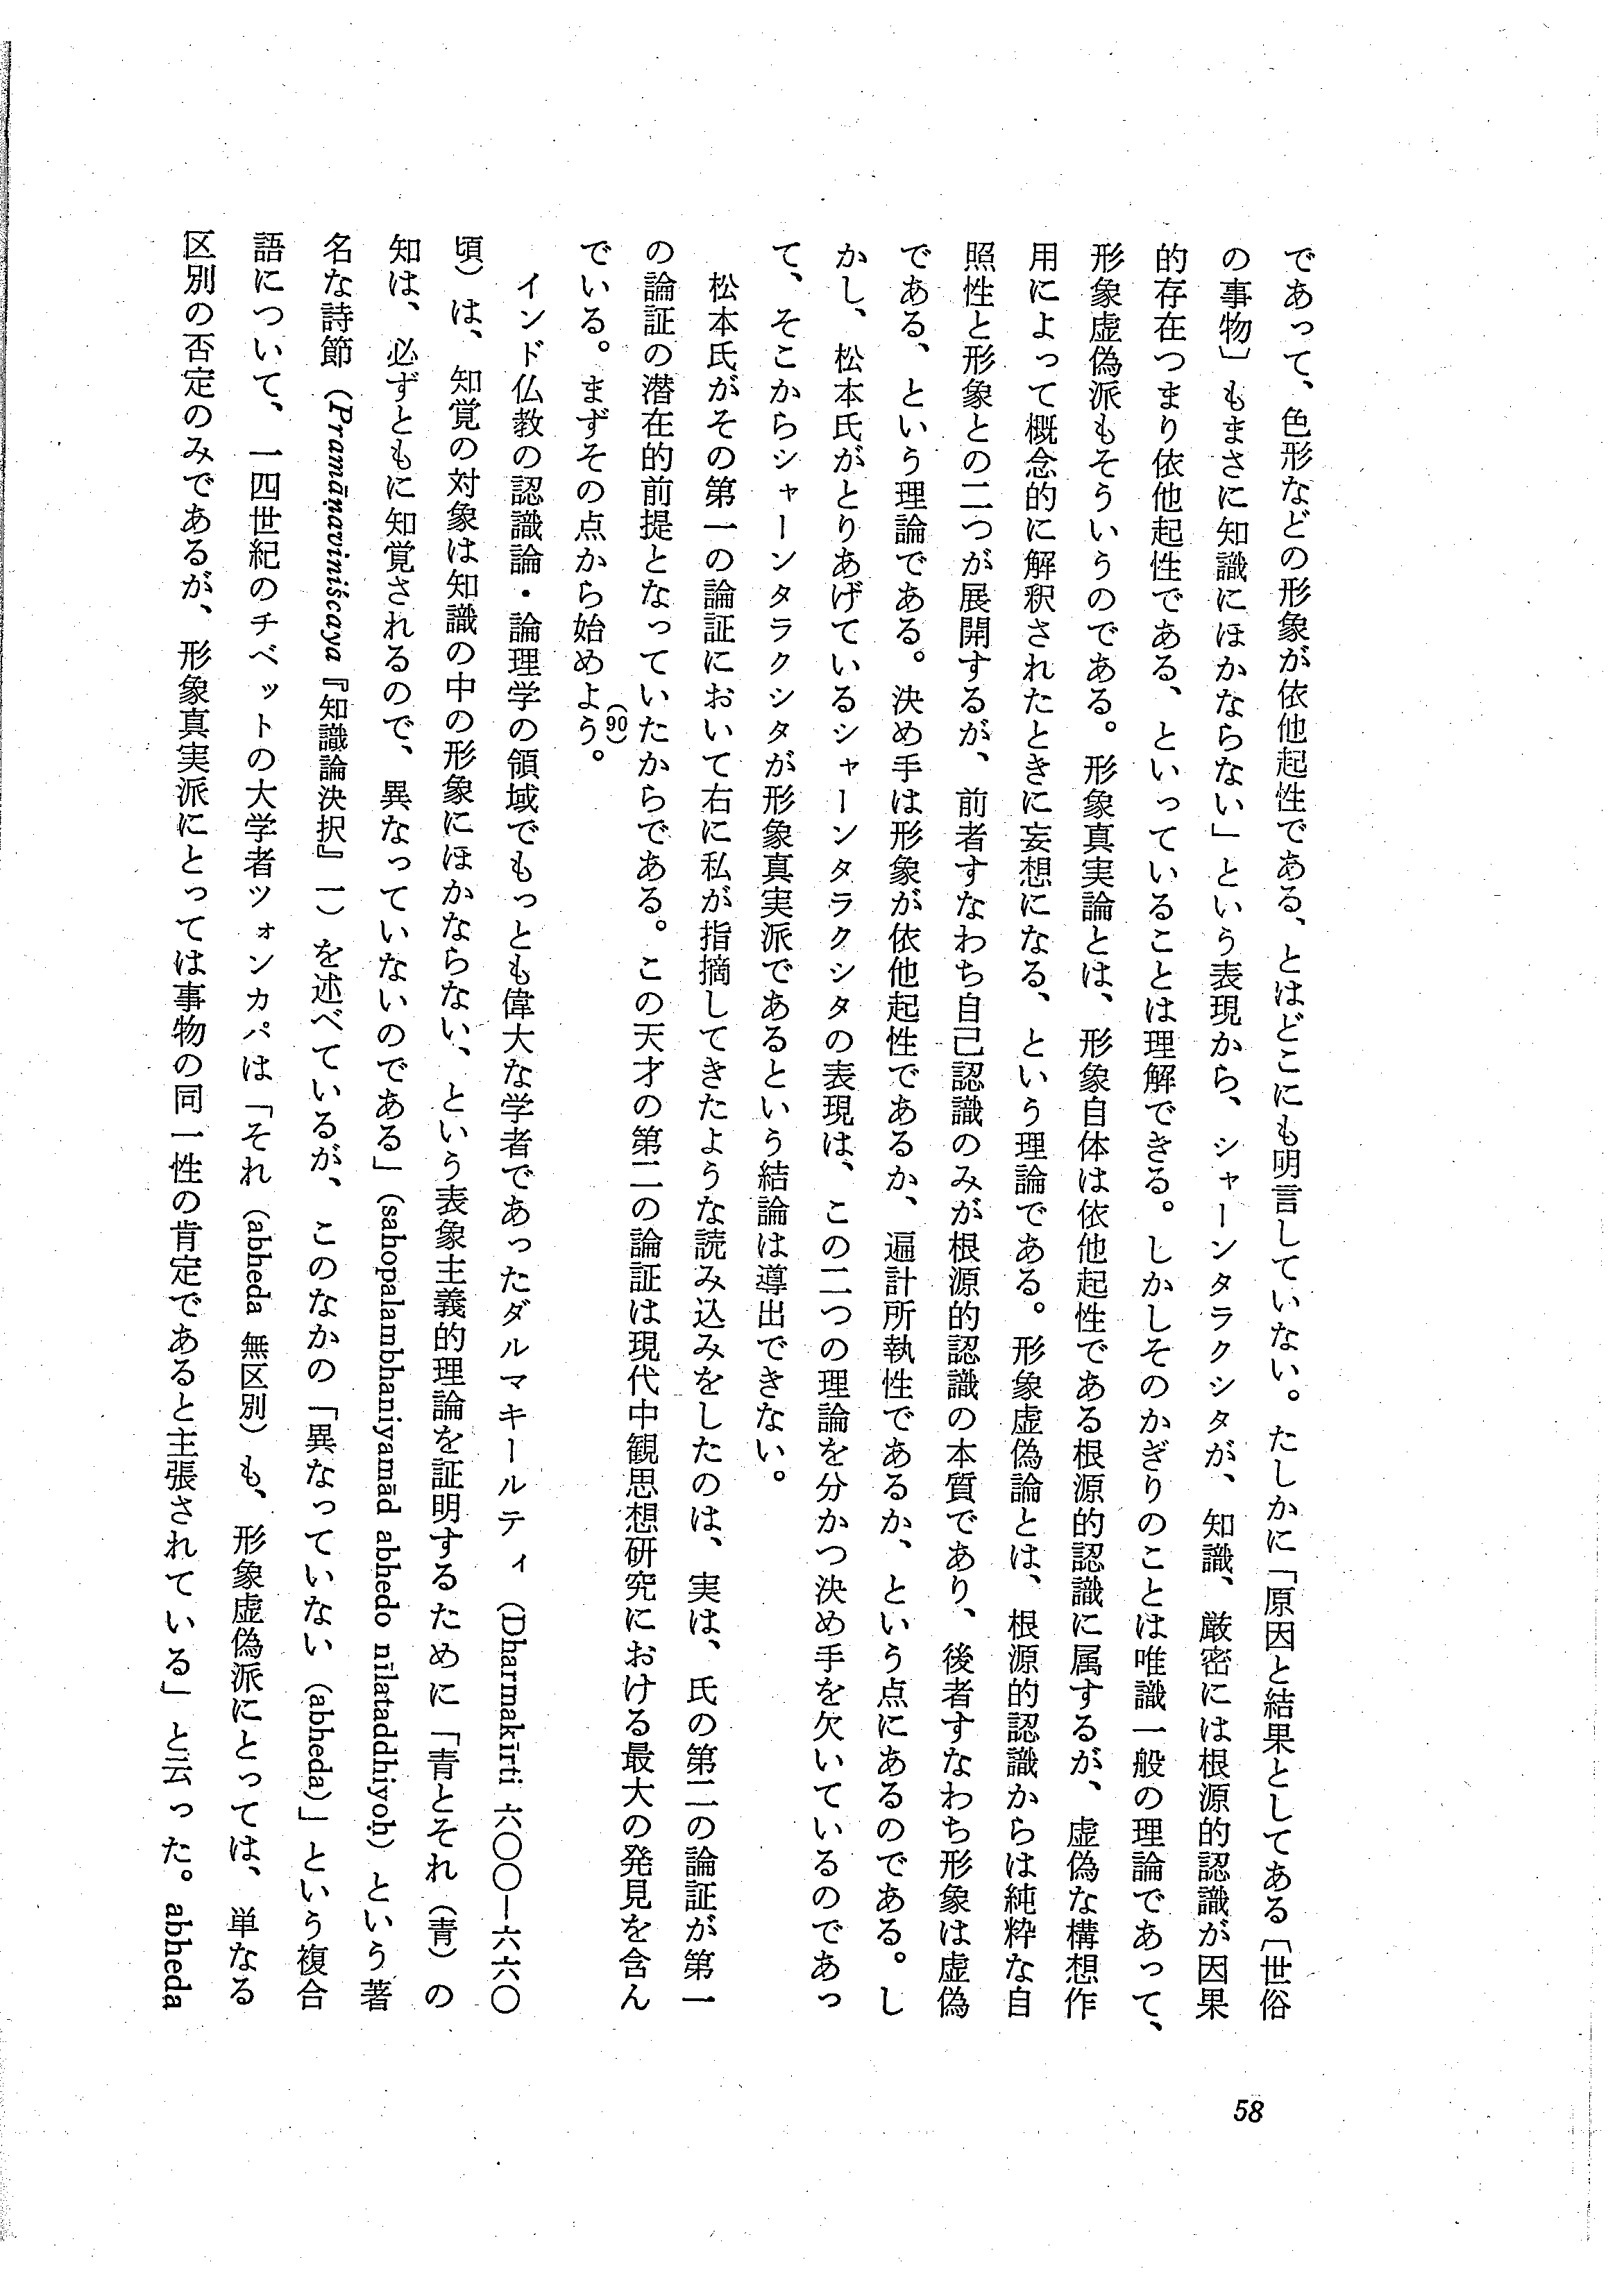 であって、色形などの形象が依他起性である、とはどこにも明言していない。たしかに「原因と結果としてある〔世俗
の事物〕もまさに知識にほかならない」という表現から、シャーンタラクシタが、知識、厳密には根源的認識が因果
的存在つまり依他起性である、といっていることは理解できる。しかしそのかぎりのことは唯識一般の理論であって、
形象虚偽派もそういうのである。形象真実論とは、形象自体は依他起性である根源的認識に属するが、虚偽な構想作
用によって概念的に解釈されたときに妄想になる、という理論である。形象虚偽論とは、根源的認識からは純粋な自
照性と形象との二つが展開するが、前者すなわち自己認識のみが根源的認識の本質であり、後者すなわち形象は虚偽
である、という理論である。決め手は形象が依他起性であるか、遍計所執性であるか、という点にあるのである。し
かし、松本氏がとりあげているシャーンタラクシタの表現は、この二つの理論を分かつ決め手を欠いているのであっ
て、そこからシャーンタラクシタが形象真実派であるという結論は導出できない。
松本氏がその第一の論証において右に私が指摘してきたような読み込みをしたのは、実は、氏の第二の論証が第一
の論証の潜在的前提となっていたからである。この天才の第二の論証は現代中観思想研究における最大の発見を含ん
でいる。まずその点から始めよう。(90)
インド仏教の認識論・論理学の領域でもっとも偉大な学者であったダルマキールティ（Dharmakīrti 六〇〇―六六〇
頃）は、知覚の対象は知識の中の形象にほかならない、という表象主義的理論を証明するために「青とそれ（青）の
知は、必ずともに知覚されるので、異なっていないのである」（sahopalambhaniyamād abhedo nīlataddhiyoḥ）という著
名な詩節（Pramāṇaviniścaya『知識論決択』一）を述べているが、このなかの「異なっていない（abheda）」という複合
語について、一四世紀のチベットの大学者ツォンカパは「それ（abheda 無区別）も、形象虚偽派にとっては、単なる
区別の否定のみであるが、形象真実派にとっては事物の同一性の肯定であると主張されている」と云った。abheda
58